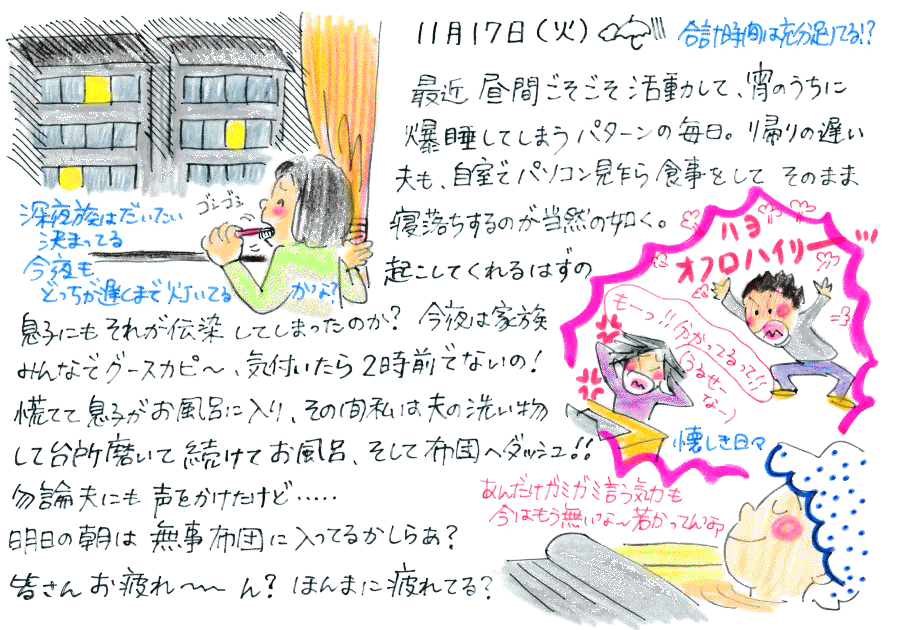 11月17日(火)
合計時間は充分足りてる!?
最近 昼間ごそごそ活動して、宵のうちに
爆睡してしまうパターンの毎日。帰りの遅い
夫も、自室でパソコン見乍ら食事をして そのまま
寝落ちするのが当然の如く。
起こしてくれるはずの
息子にもそれが伝染してしまったのか? 今夜は家族
みんなでグースカピ〜、気付いたら2時前でないの!
慌てて息子がお風呂に入り、その間私は夫の洗い物
して台所磨いて続けてお風呂、そして布団へダッシュ!!
勿論夫にも声をかけたけど……
明日の朝は無事布団に入ってるかしらぁ?
皆さんお疲れ〜〜ん? ほんまに疲れてる?
ゴシゴシ
深夜族はだいたい
決まってる
今夜も
どっちが遅くまで灯いてる
かな?
ハヨ
オフロハイリーー
もーっ!!分かってるって!!
(うるせ
なー)
懐しき日々
あんだけガミガミ言う気力も
今はもう無いな〜若かってんな